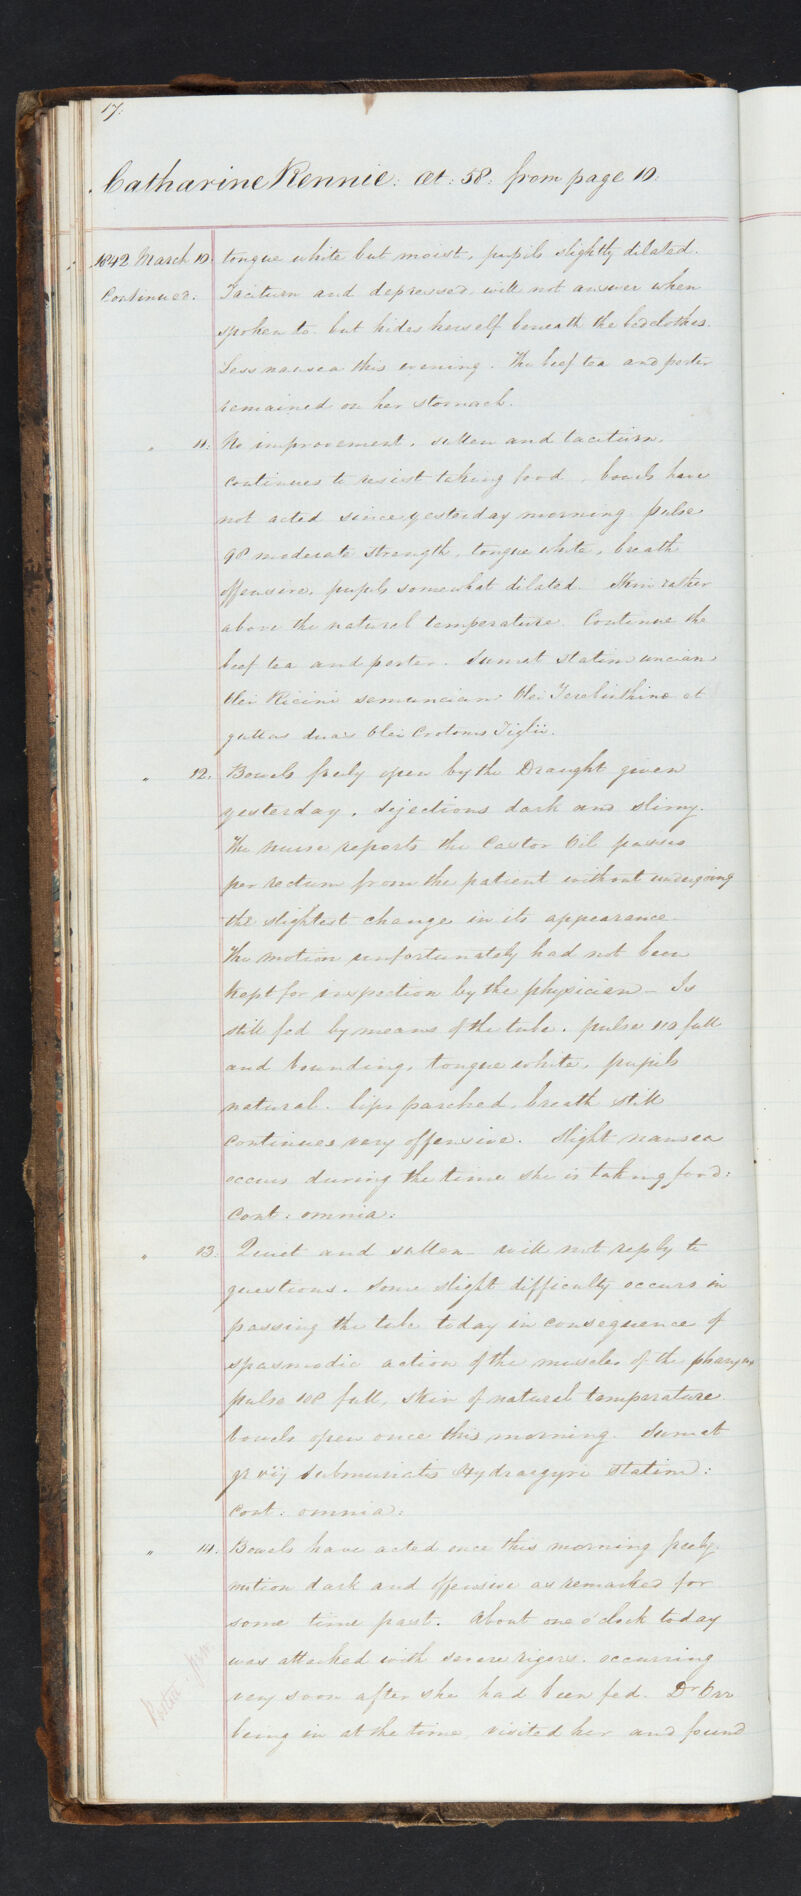 17.
Catharine Rennie: æt: 58: from page 10:
1842 March 10. tongue white but moist, pupils slightly dilated.
Continued. Taciturn and depressed, will not answer when
spoken to. but hides herself beneath the bedclothes.
Less nausea this evening. The beef tea and porter
remained on her stomach.
" 11: No improvement, sullen and taciturn,
continues to resist taking food, bowels have
not acted since yesterday morning. pulse
98 moderate strength, tongue white, breath
offensive, pupils somewhat dilated. Skin rather
above the natural temperature. Continue the
beef tea and porter. Sumat statim unciam
Olei Ricini semunciam Olei Terebinthinæ et
guttas duas Olei Crotonis Tiglii.
" 12. Bowels freely open by the Draught given
yesterday, dejections dark and slimy.
The nurse reports the Castor Oil passes
per rectum from the patient without undergoing
the slightest change in its appearance.
The motion unfortunately had not been
kept for inspection by the physician – Is
still fed by means of the tube. pulse 110 full
and bounding, tongue white, pupils
natural. lips parched, breath still
continues very offensive. Slight nausea
occurs during the time she is taking food:
Cont: omnia:
" 13: Quiet and sullen – will not reply to
questions. Some slight difficulty occurs in
passing the tube today in consequence of
spasmodic action of the muscles of the pharynx
pulse 108 full, skin of natural temperature
bowels open once this morning. Sumat
gr vij Submuriatis Hydrargyri statim:
Cont: omnia:
" 14. Bowels have acted once this morning freely.
motion dark and offensive as remarked for
some time past. About one o'clock today
was attacked with severe rigors. occurring
very soon after she had been fed. Dr Orr
being in at the time, visited her and found